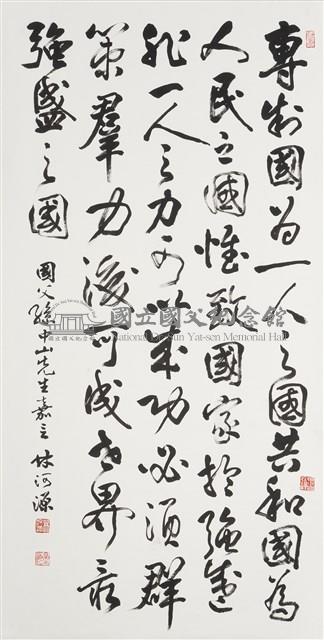 專制國為一人之國共和國為
人民之國惟致國家於強盛
非一人之力可以成功必須群
策羣力後可成世界最
強盛之國
國父孫中山先生嘉言 林河源
國立國父紀念館
National Dr. Sun Yat-sen Memorial Hall